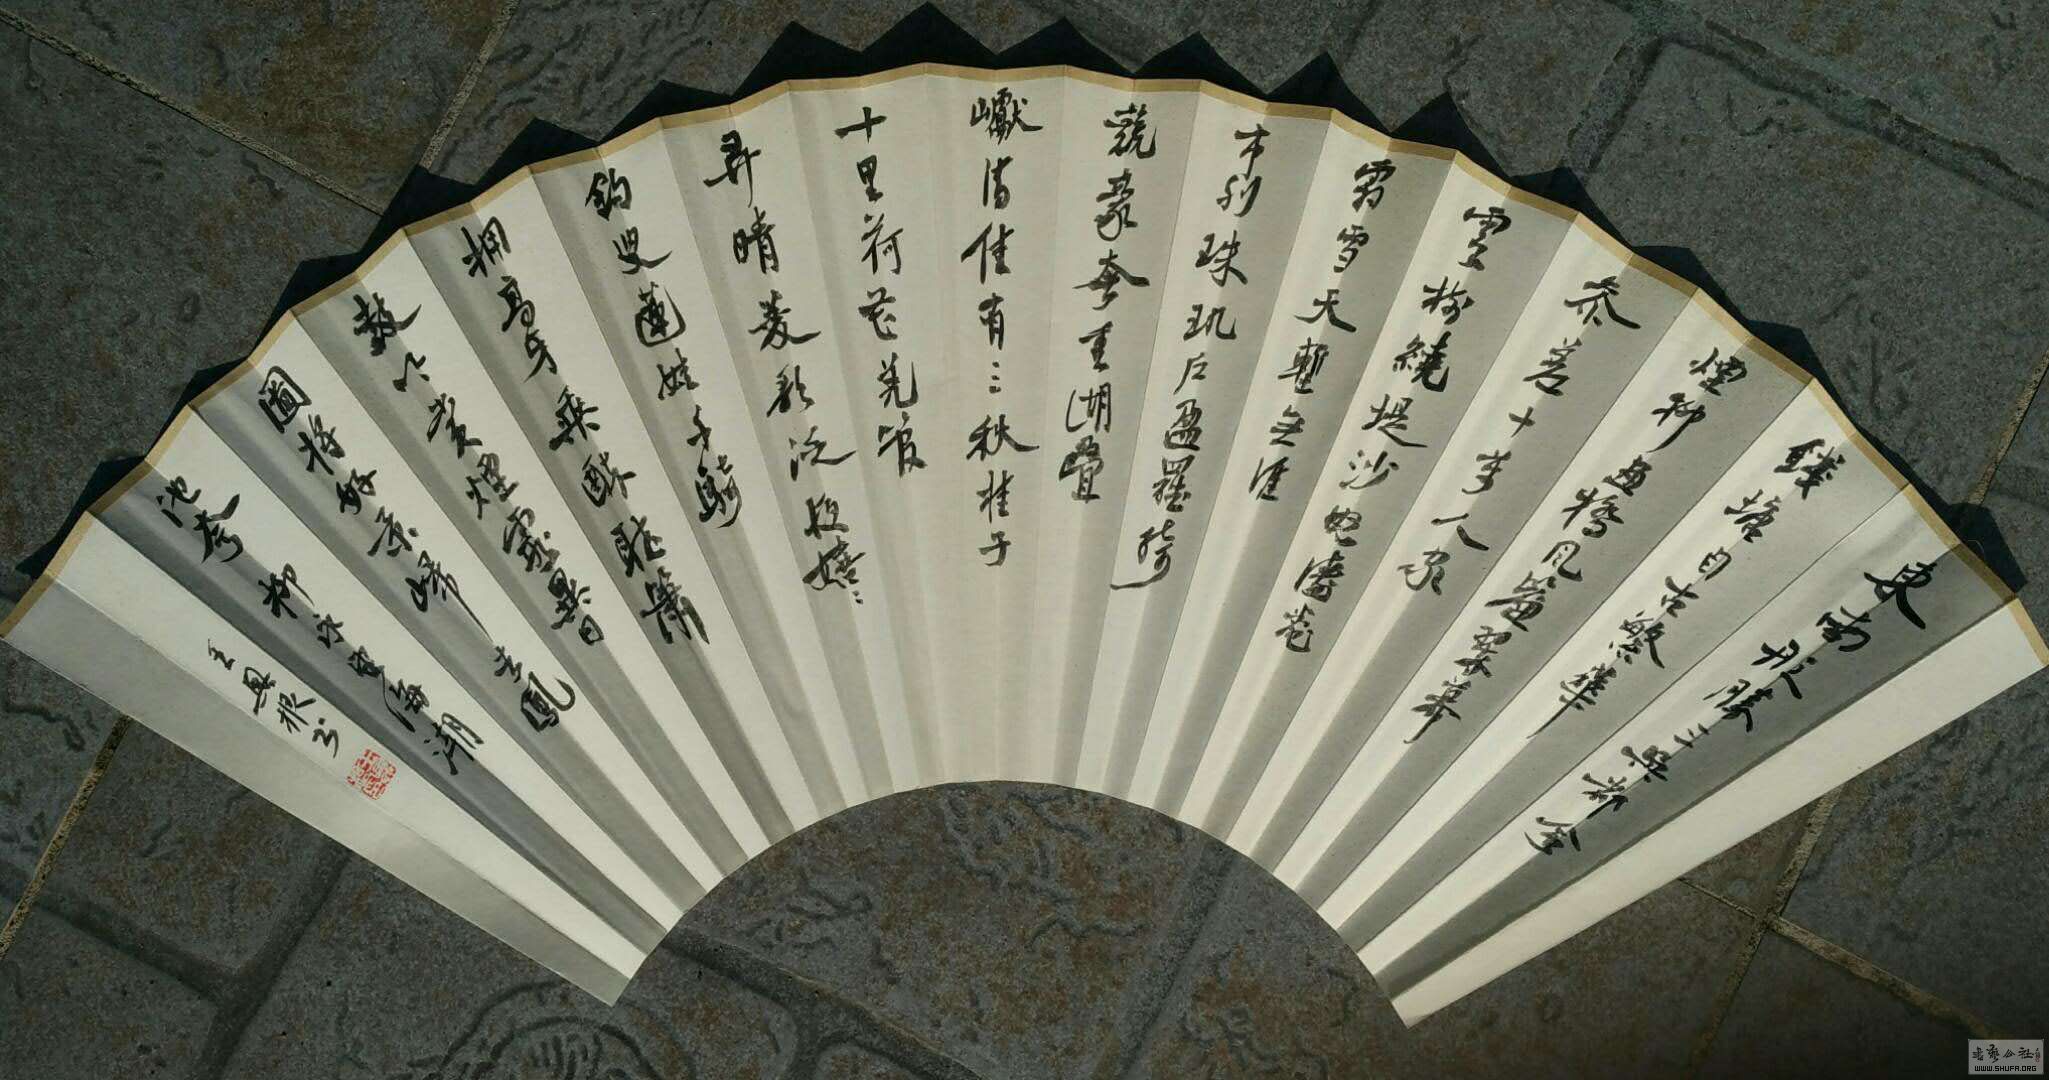 東南形勝三吳都會
錢塘自古繁華
煙柳畫橋風簾翠幕
參差十萬人家
雲樹繞堤沙怒濤卷
霜雪天塹無涯
市列珠璣戶盈羅綺
競豪奢重湖疊
巘清佳有三秋桂子
十里荷花羌管
弄晴菱歌泛夜嬉〻
釣叟蓮娃千騎
擁高牙乘醉聽簫
鼓吟賞煙霞異日
圖將好景歸去鳳
池夸 柳永望海潮
王興根书
WWW.SHUFA.ORG